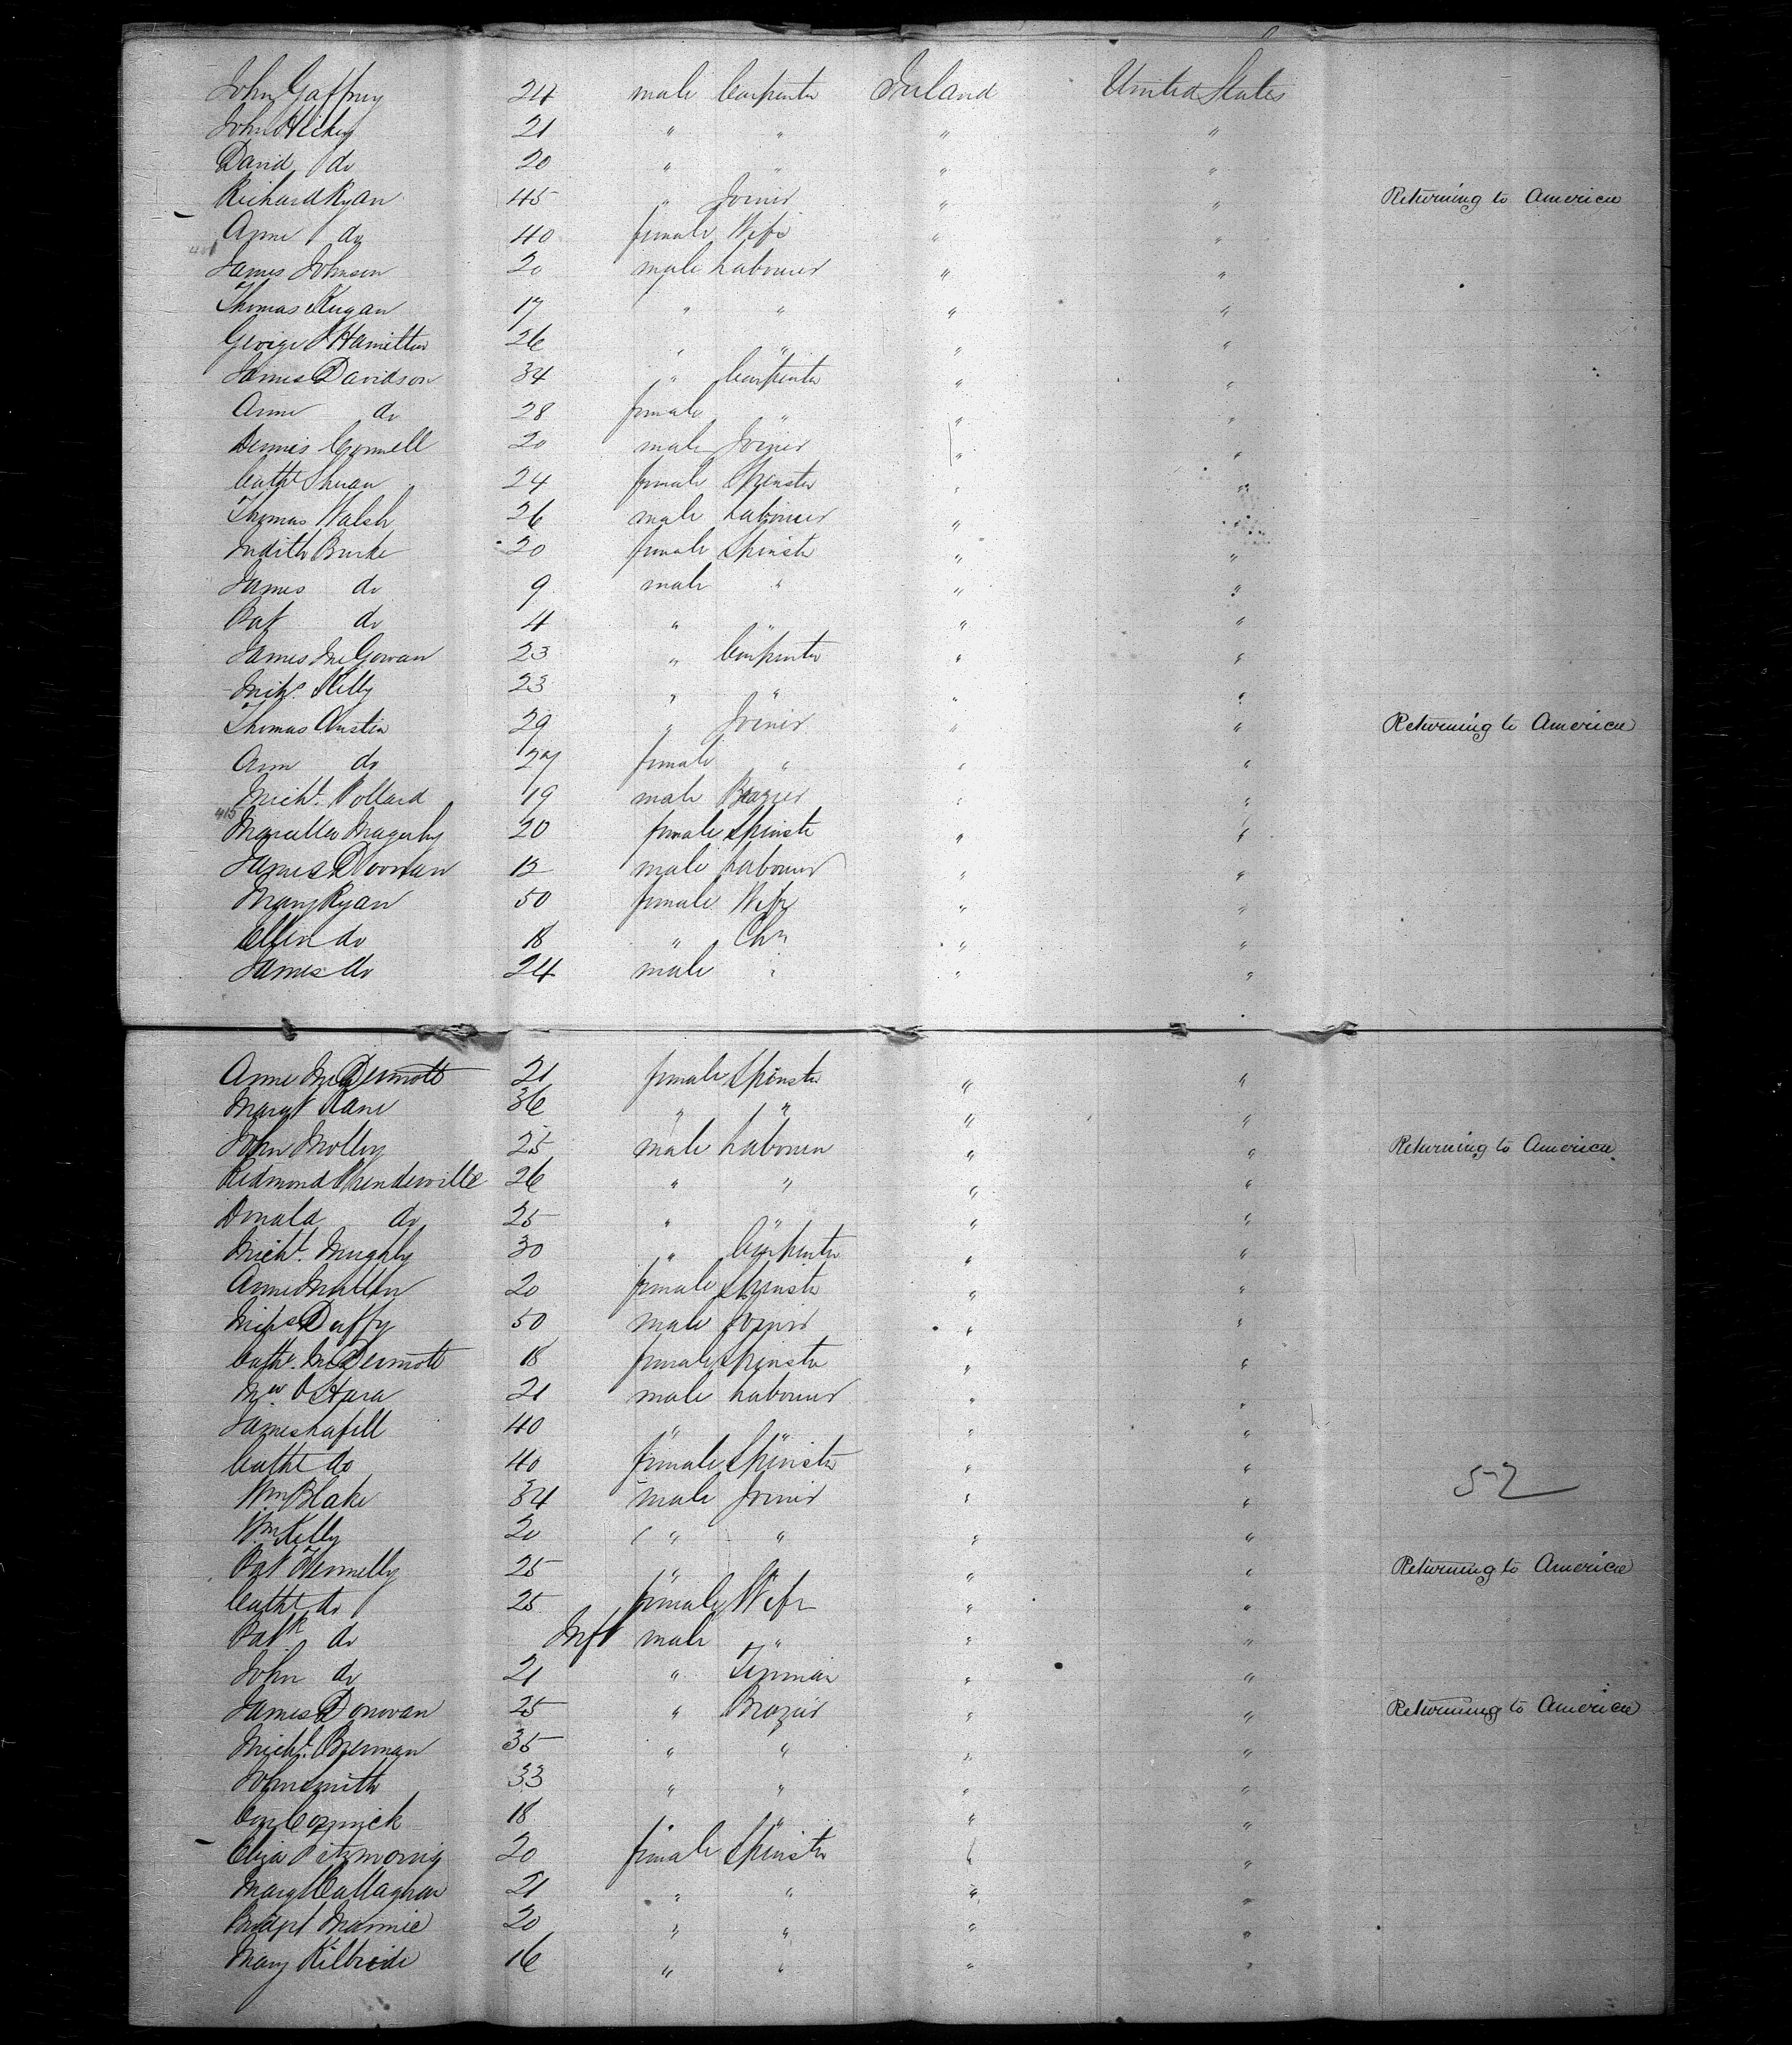 John Gaffney 24 male Carpenter Ireland United States
John Hickey 21 " " " "
David do 20 " " " "
Richard Ryan 45 " Joiner " " Returning to America
Anne do 40 female Wife " "
James Johnson 20 male Labourer " "
Thomas Keegan 17 " " " "
George Hamilton 26 " " " "
James Davidson 34 " Carpenter " "
Anne do 28 female " " "
Dennis Connell 20 male Joiner " "
Cathe 24 female Spinster " "
Thomas Walsh 26 male Labourer " "
Judith Burke 20 female Spinster " "
James do 9 male " " "
Pat do 4 " " " "
James McGowan 23 " Carpenter " "
Mihs Kelly 23 " " " "
Thomas Austin 29 " Joiner " " Returning to America
Ann do 27 female " " "
Michl. Pollard 19 male Brazier " "
415
Marcella 20 female Spinster " "
James Doonan 12 male Labourer " "
Mary Ryan 50 female Wife " "
Ellen do 18 " Chn " "
James do 24 male " " "
Anne McDermott 21 female Spinster " "
Margt Kane 36 " " " "
John Molloy 25 male Labourer " " Returning to America
Redmond Prenderville 26 " " " "
Donald do 25 " " " "
Michl. 30 " Carpenter " "
Anne Mullen 20 female Spinster " "
Mihs Duffy 50 male Joiner " "
Cathe. McDermott 18 female Spinster " "
O'Hara 21 male Labourer " "
James 40 " " " "
Cathe do 40 female Spinster " "
52
Wm Blake 34 male Joiner " "
Wm Kelly 20 " " " "
Pat Fennelly 25 " " " " Returning to America
Cathe do 25 female Wife " "
Patk do Inft male " " "
John do 21 " Tinman " "
James Donovan 25 " Brazier " " Returning to America
Michl. Brennan 35 " " " "
John Smith 33 " " " "
Cormick 18 " " " "
Eliza Fitzmorris 20 female Spinster " "
Mary Callaghan 21 " " " "
Bridget Mannie 20 " " " "
Mary Kilbride 16 " " " "